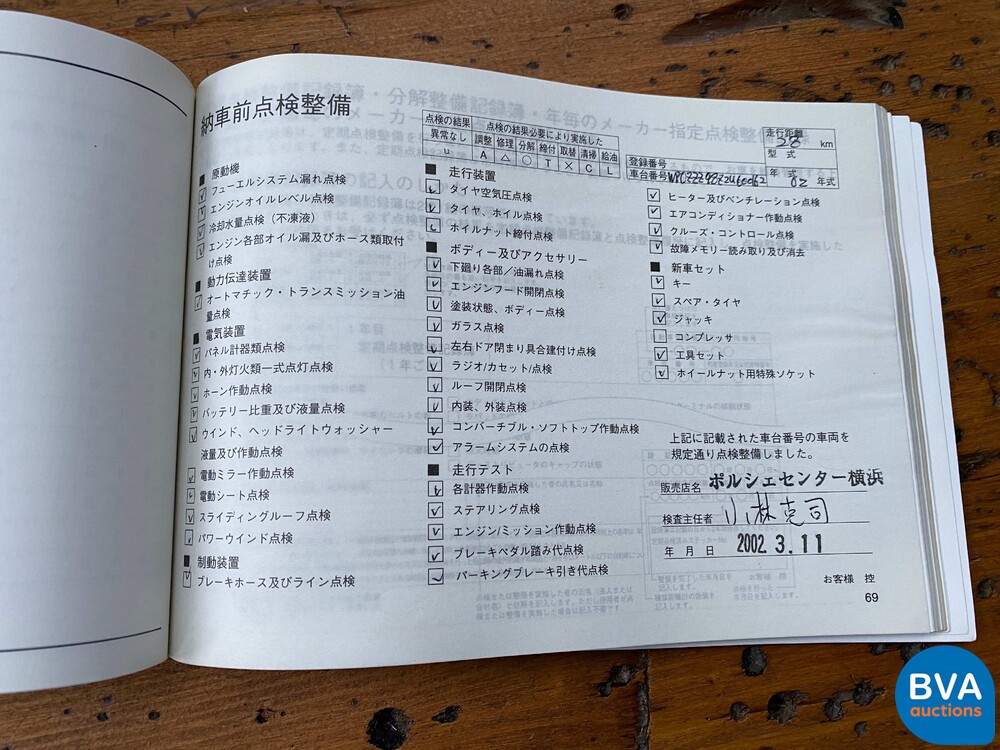 納車前点検整備
点検の結果 点検の結果必要により実施した
異常なし 調整 修理 分解 締付 取替 清掃 給油
レ A △ ○ T × C L
走行距離 28 km
登録番号 型式
車台番号 年式 02 年式
■ 原動機
フューエルシステム漏れ点検
エンジンオイルレベル点検
冷却水量点検（不凍液）
エンジン各部オイル漏及びホース類取付
け点検
■ 動力伝達装置
オートマチック・トランスミッション油
量点検
■ 電気装置
パネル計器類点検
内・外灯火類一式点灯点検
ホーン作動点検
バッテリー比重及び液量点検
ウインド、ヘッドライトウォッシャー
液量及び作動点検
電動ミラー作動点検
電動シート点検
スライディングルーフ点検
パワーウインド点検
■ 制動装置
ブレーキホース及びライン点検
■ 走行装置
タイヤ空気圧点検
タイヤ、ホイル点検
ホイルナット締付点検
■ ボディー及びアクセサリー
下廻り各部／油漏れ点検
エンジンフード開閉点検
塗装状態、ボディー点検
ガラス点検
左右ドア閉まり具合建付け点検
ラジオ/カセット/点検
ルーフ開閉点検
内装、外装点検
コンバーチブル・ソフトトップ作動点検
アラームシステムの点検
■ 走行テスト
各計器作動点検
ステアリング点検
エンジン/ミッション作動点検
ブレーキペダル踏み代点検
パーキングブレーキ引き代点検
ヒーター及びベンチレーション点検
エアコンディショナー作動点検
クルーズ・コントロール点検
故障メモリー読み取り及び消去
■ 新車セット
キー
スペア・タイヤ
ジャッキ
コンプレッサ
工具セット
ホイールナット用特殊ソケット
上記に記載された車台番号の車両を
規定通り点検整備しました。
販売店名 ポルシェセンター横浜
検査主任者 小林克司
年月日 2002 3.11
お客様 控
69
BVA
auctions